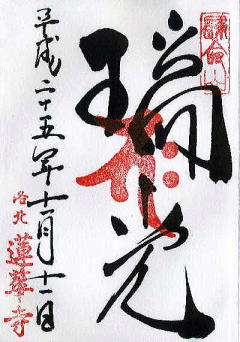 歸命山
瑞光
平成二十五年十一月十一日
洛北
蓮華寺